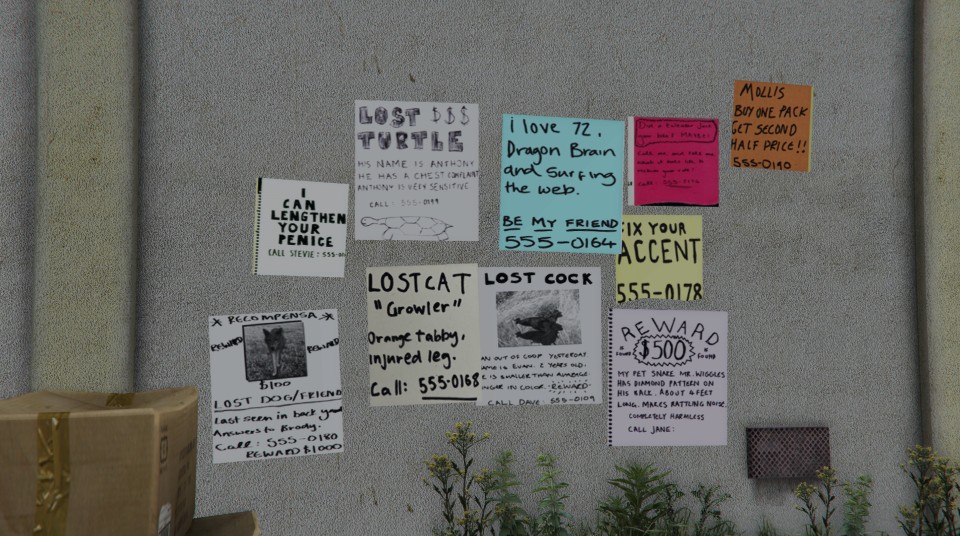 LOST $$$
TURTLE
HIS NAME IS ANTHONY
HE HAS A CHEST COMPLAINT
ANTHONY IS VERY SENSITIVE
CALL: 555-0199
i love 72.
Dragon Brain
and Surfing
the web.
BE MY FRIEND
555-0164
call
MOLLIS
BUY ONE PACK
GET SECOND
HALF PRICE!!
555-0190
I
CAN
LENGTHEN
YOUR
PENICE
CALL STEVIE: 555-
IX YOUR
ACCENT
555-0178
* RECOMPENSA *
REWARD
REWARD
$100
LOST DOG/FRIEND
Last seen in back yard
Answers to Brody.
Call: 555-0180
REWARD $1000
LOST CAT
"Growler"
Orange tabby,
injured leg.
Call: 555-0168
LOST COCK
AN OUT OF COOP YESTERDAY.
AME IS EUAN. 2 YEARS OLD.
E IS SMALLER THAN AVERAGE.
INGER IN COLOR. REWARD.
CALL DAVE: 555-0109
REWARD
$500
FOUND
MY PET SNAKE MR. WIGGLES
HAS DIAMOND PATTERN ON
HIS BACK. ABOUT 4 FEET
LONG. MAKES RATTLING NOISE.
COMPLETELY HARMLESS
CALL JANE: